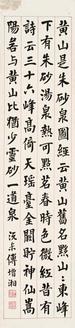 黄山是朱砂泉圖經云黄山舊名黟山東峰
下有朱砂湯泉熱可點茗春時色微紅
詩云三十六峰高倚天瑶臺金闕貯神仙嵩
陽若與黄山比猶少靈砂一道泉 沅尗傅增湘